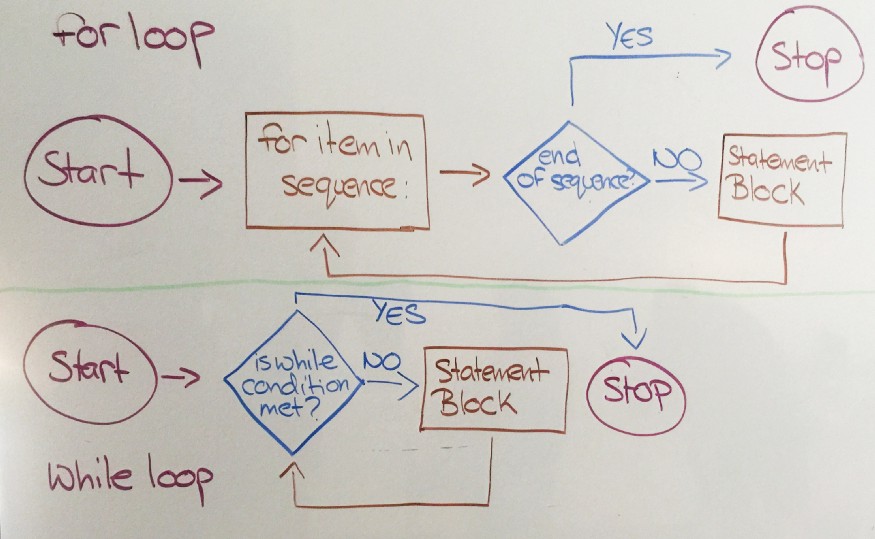 for loop
YES
Stop
Start
for item in
sequence:
end
of sequence?
NO
Statement
Block
YES
Start
is while
condition
met?
NO
Statement
Block
Stop
While loop